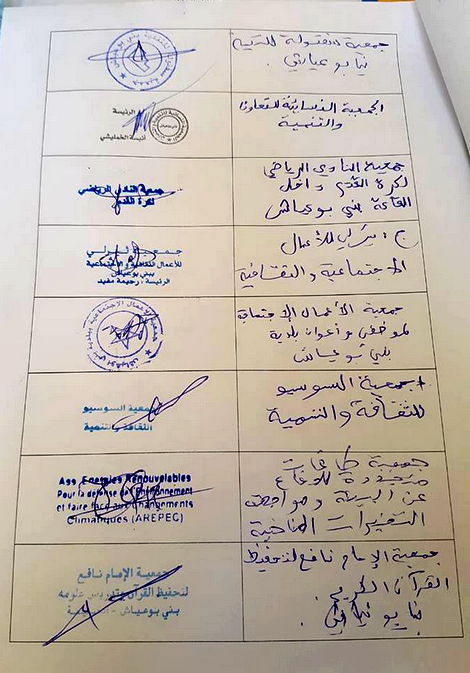 جمعية
للتنمية
الجمعية النسائية للتعاون
والتنمية
الرئيسة
جمعية النادي الرياضي
لكرة القدم داخل
القاعة بني بوعياش
جمعية النادي الرياضي
لكرة القدم
للأعمال
الاجتماعية والثقافية
للأعمال الثقافية والاجتماعية
ببني بوعياش
الرئيسة : رحيمة مفيد
جمعية الأعمال الاجتماعية
لموظفي وأعوان بلدية
بني بوعياش
جمعية السوسيو
للثقافة والتنمية
جمعية السوسيو
الثقافة والتنمية
جمعية طاقات
متجددة للدفاع
عن البيئة ومواجهة
التغيرات المناخية
Ass Energies Renouvelables
Pour la défense de l'Environnement
et faire face aux Changements
Climatiques (AREPEC)
جمعية الإمام نافع لتحفيظ
القرآن الكريم
جمعية الإمام نافع
لتحفيظ القرآن وتدريس علومه
بني بوعياش -